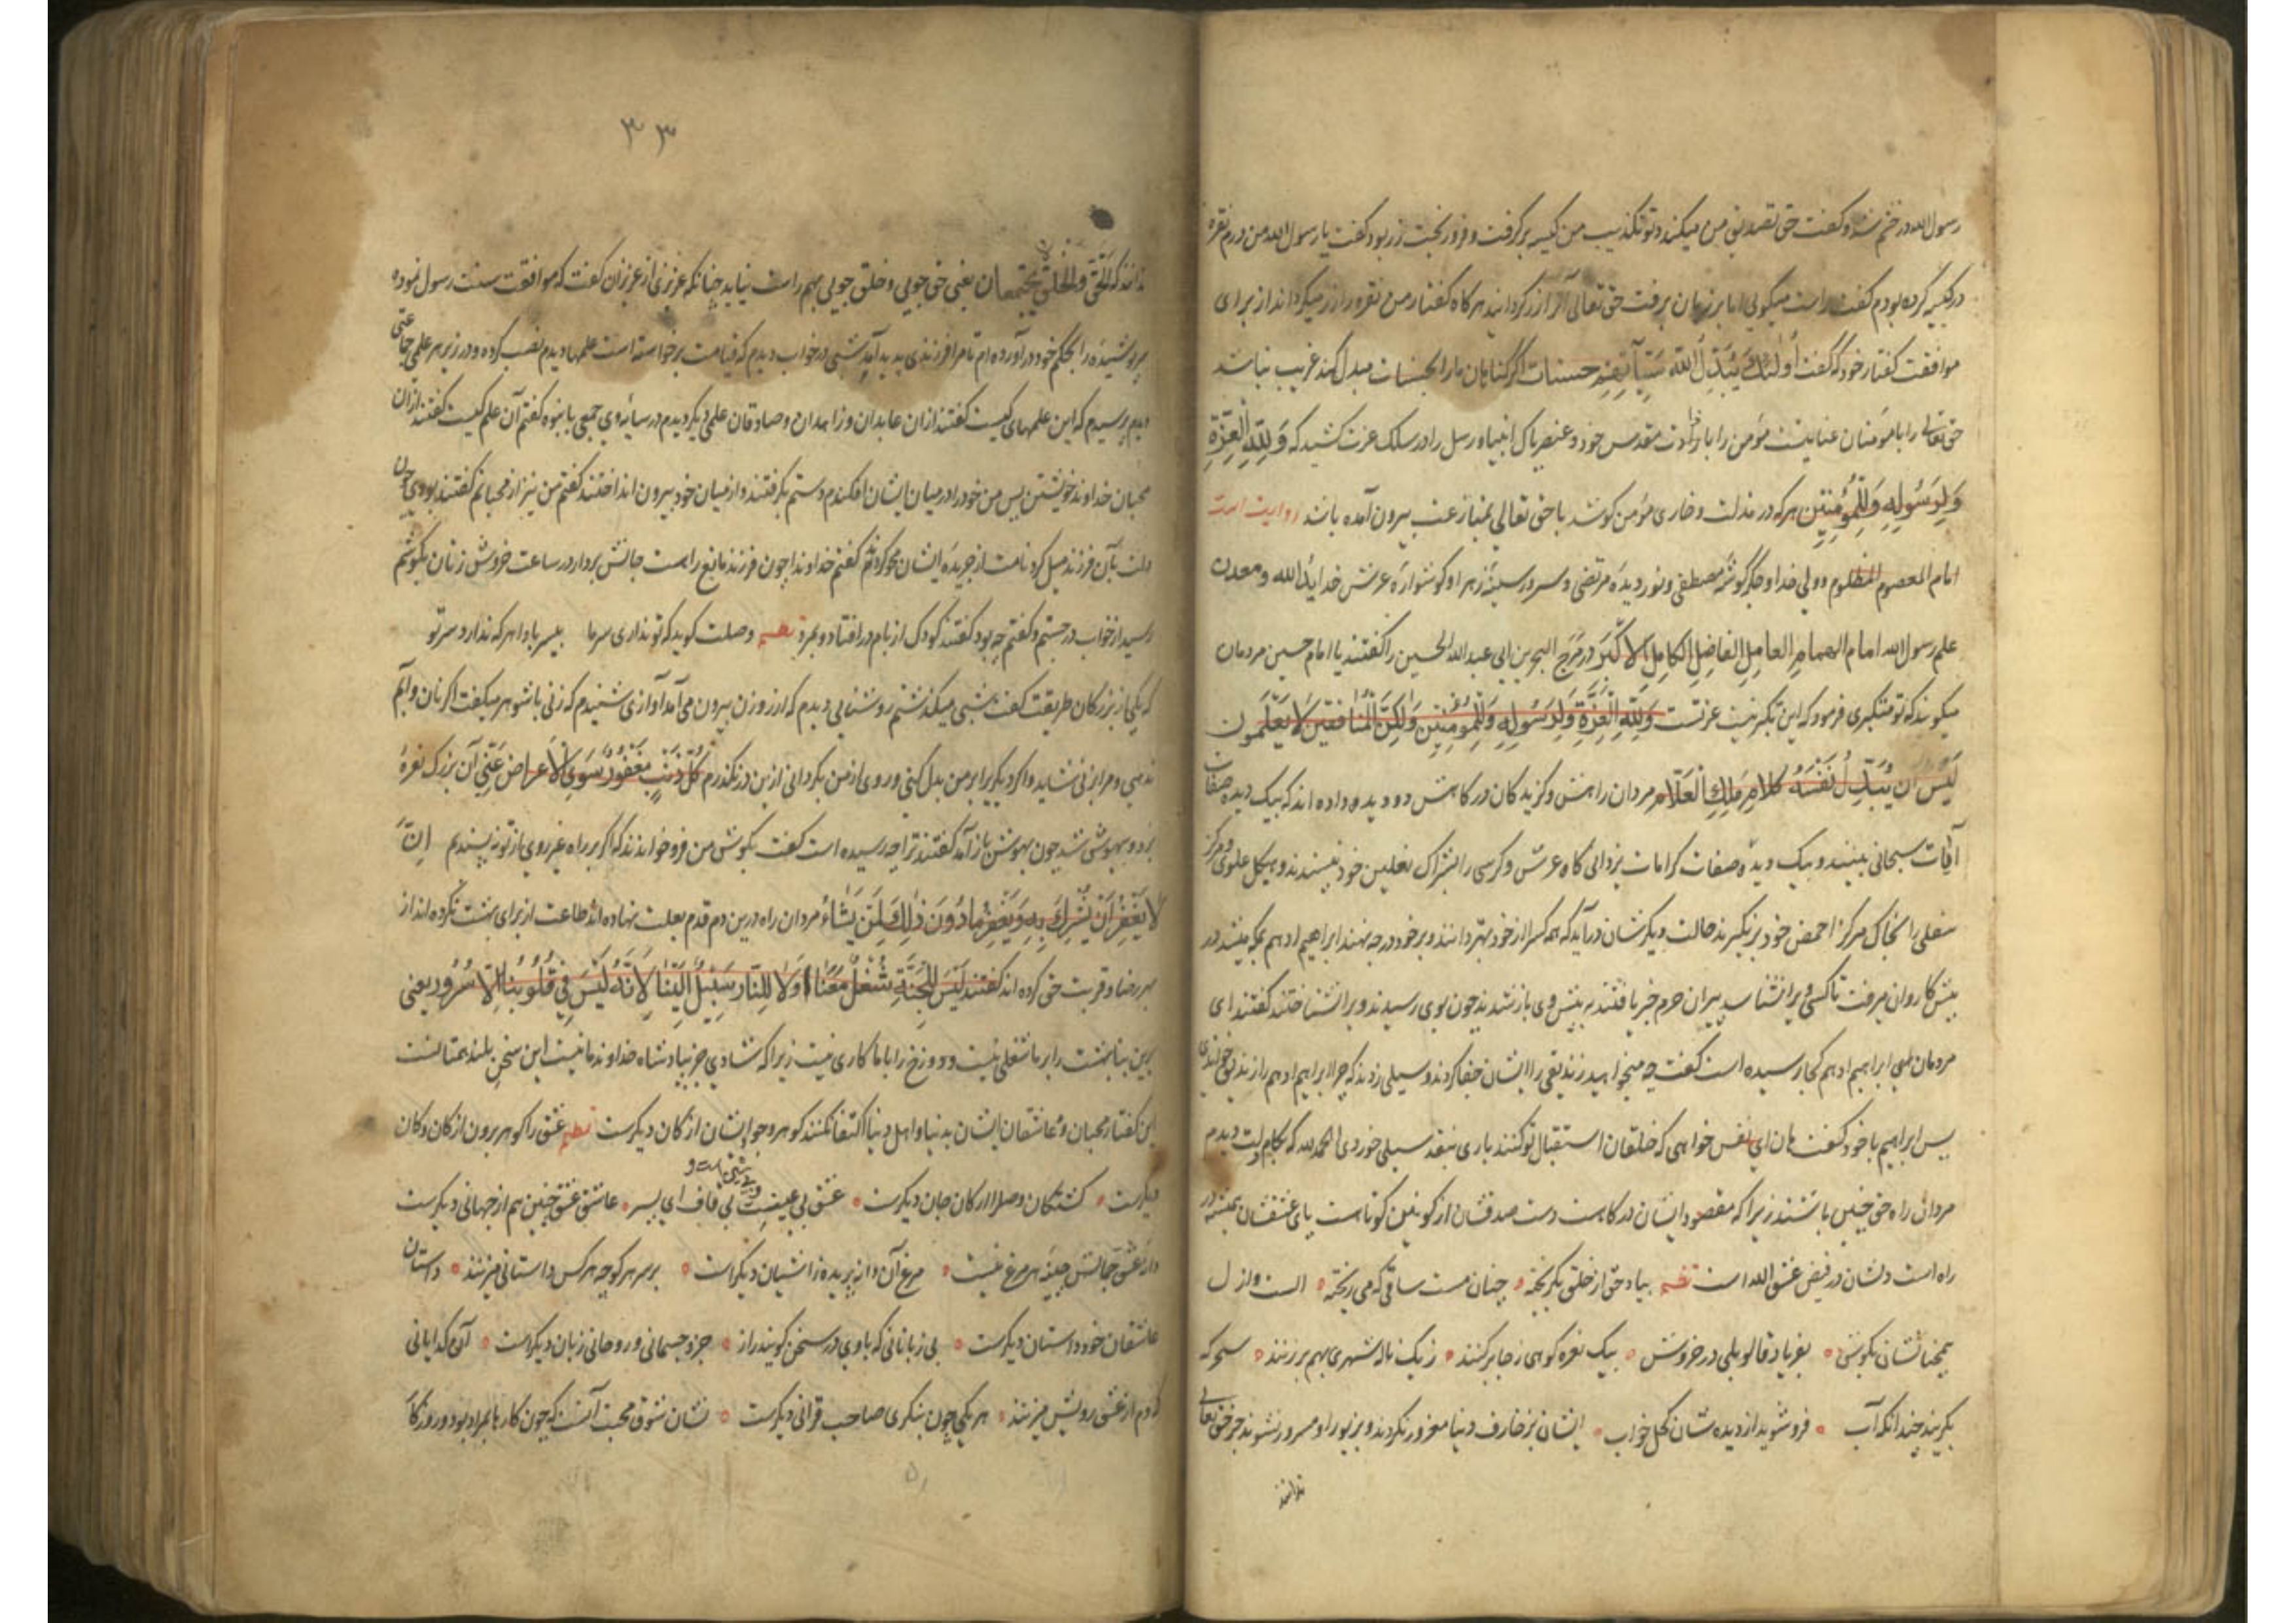 رسول الله در خشم شد و گفت حق تصدیق من میکند و تو تکذیب من کیسه برگرفت و فرو ریخت زر بود گفت یا رسول الله من درم نقره
در کیسه کرده بودم گفت راست میگویی اما بر زبان برفت حق تعالی آنرا زر گردانید هرگاه گفتار من نقره را زر میگرداند از برای
موافقت گفتار خود که گفت أُولٰئِكَ يُبَدِّلُ اللّٰهُ سَيِّآتِهِم حسنات اگر گناهان ما را بحسنات مبدل کند غریب نباشد
حق تعالی را با مؤمنان عنایتست مؤمن را با ذات مقدس خود و عنصر پاک انبیا و رسل را در سلک عزت کشید که وَلِلّٰهِ الْعِزَّةُ
وَلِرَسُولِهِ وَلِلْمُؤْمِنِينَ هرکه در مذلت و خواری مؤمن کوشد با حق تعالی بمبارزت بیرون آمده باشد روایت است
امام المعصوم المظلوم و ولی خدا و جگرگوشهٔ مصطفی و نور دیدهٔ مرتضی و سرور سینهٔ زهرا و گوشوارهٔ عرش خدا ید الله و معدن
علم رسول الله امام الهمام العامل الفاضل الکامل الاکبر در مرج البحرین ابی عبد الله الحسین را گفتند یا امام حسین مردمان
میگویند که تو متکبری فرمود که این تکبر نیست عزتست وَلِلّٰهِ الْعِزَّةُ وَلِرَسُولِهِ وَلِلْمُؤْمِنِينَ وَلٰكِنَّ الْمُنَافِقِينَ لَا يَعْلَمُونَ
لَيْسَ أَنْ يُبَدِّلَ نَفْسَهُ كَلَامِ مَلِكِ الْعَلَّامِ مردان راهش و گزیدگان درگاهش دو دیده داده اند که بیک دیده صفات
آفات سبحانی بینند و بیک دیده صفات کرامات یزدانی گاه عرش و کرسی را بشراک نعلین خود نپسندند و هیکل علوی و مرکز
سفلی را بخاک مرکز اخمص خود برنگیرند حالت دیگرشان درآید که همه کس را از خود بهتر دانند و بر خود درجه نهند ابراهیم ادهم بمکه میشد در
پیش کاروان میرفت تا کسی ویرا نشناسد پیران حرم خبر یافتند به پیش وی باز شدند چون بوی رسیدند ویرا نشناختند گفتند ای
مردمان هی ابراهیم ادهم کجا رسیده است گفت چه میخواهید زندیقی را ایشان جفا کردند و سیلی زدند که چرا ابراهیم ادهم را زندیق خواندی
پس ابراهیم با خود گفت هان ای نفس خواهی که خلقان استقبال تو کنند باری بنقد سیلی خوردی الحمد لله که بکام دلت دیدم
مردان راه حق چنین باشند زیرا که مقصود ایشان درگاهست دست صدقشان از کونین کوتاست پای عشقشان همیشه در
راه است دلشان در فیض عشق الله است نظم بیاد حق از خلق بگریخته چنان مست ساقی که می ریخته الست از ازل
همچنانشان بگوش بفریاد قالوا بلی در خروش بیک نعره کوهی ز جا برکنند ز یک ناله شهری بهم برزنند سحرگه
بگریند چندانکه آب فرو شوید از دیده شان کحل خواب ایشان بزخارف دنیا مغرور نگردند و بزیور او مسرور نشوند جز حق تعالی
ندانند
۳۳
ندانند که الْحَقّ وَالْخَلْق يَجْتَمِعَانِ یعنی حق جویی و خلق جویی بهم راست نیاید چنانکه عزیزی از عزیزان گفت که موافقت سنت رسول نموده
پوشیده را بحکم خود در آورده ام تا مرا فرزندی پدید آید شبی در خواب دیدم که قیامت برخواسته است علمها دیدم نصب کرده و در زیر هر علمی جماعتی
دیدم پرسیدم که این علمهای کیست گفتند از ان عابدان و زاهدان و صادقان علمی دیگر دیدم در سایهٔ وی جمعی با نبوه گفتم آن علم کیست گفتند از آن
محبان خداوند خویشتن پس من خود را در میان ایشان افکندم دستم بگرفتند و از میان خود بیرون انداختند گفتم من نیز از محبانم گفتند بودی چون
دلت بآن فرزند میل کرد نامت از جریدهٔ ایشان محو کردند گفتم خداوندا چون فرزند مانع راهست جانش بردار در ساعت خروش زنان بگوشم
رسید از خواب در جستم و گفتم چه بود گفتند کودک از بام در افتاد و بمرد نظم وصلت گوید که تو نداری سر ما بیسر بادا هرکه ندارد سر تو
که یکی از بزرگان طریقت گفت شبی میگذشتم روشنایی دیدم که از روزن بیرون می آمد آوازی شنیدم که زنی با شوهر میگفت اگر نان و آبم
ندهی و مرا بزنی شاید و اگر دیگر برابر من بدل کنی و روی از من بگردانی ازین در نگذرم كُلُّ ذَنْبٍ مَغْفُورٌ سِوَى الْاَعْرَاضِ عَنِّي آن بزرگ نعرهٔ
بزد و بیهوش شد چون بهوش باز آمد گفتند ترا چه رسیده است گفت بگوش من فرو خواندند که اگر بر راه غیر روی از تو نپسندیم اِنَّ
لَا يَغْفِرُ أَنْ يُشْرَكَ بِهِ وَيَغْفِرُ مَا دُونَ ذٰلِكَ لِمَنْ يَشَاءُ مردان راه درین دم قدم بعلت ننهاده اند طاعت از برای بهشت نکرده اند از
بهر رضا و قربت حق کرده اند گفتند لَيْسَ لِلْجَنَّةِ شُغْلٌ مَعَنَا وَلَا لِلنَّارِ سَبِيلٌ إِلَيْنَا لِأَنَّهُ لَيْسَ فِي قُلُوبِنَا إِلَّا سُرُور یعنی
برین بنا بهشت را بر ما شغلی نیست و دوزخ را با ما کاری نیست زیرا که شادی جز بپادشاه خداوند ما نیست این سخن بلند همتانست
این گفتار محبان و عاشقان ایشان به دنیا و اهل دنیا اکتفا نکنند گوهر وجود ایشان از کان دیگرست نظم عشق را گوهر برون از کان و کان
دیگرست کشتگان وصل را ارکان جان دیگرست عشق بی عینست بی قاف ای پسر عاشق عشق چنین هم از جهانی دیگرست
دانهٔ عشق جمالش چینهٔ هر مرغ نیست مرغ آن دانه پریده ز آشیان دیگرست بر سر هر کوچه هر کس داستانی میزنند داستان
عاشقان خود داستان دیگرست بی زبانانی که با وی در سخن گویند راز جز و جسمانی و روحانی زبان دیگرست آن گدایانی
که دم از عشق رویش میزنند هر یکی چون بنگری صاحب قرانی دیگرست نشان شوق محبت آنست که چون کارها بمراد بود و روزگار